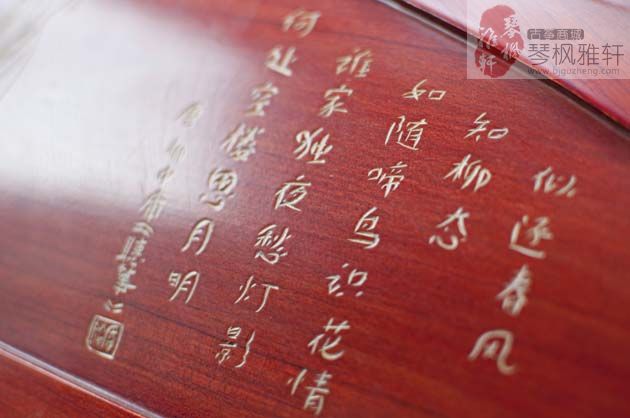 似逐春风
知柳态
如随啼鸟识花情
谁家独夜愁灯影
何处空楼思月明
琴枫
雅轩
古筝商城
琴枫雅轩
www.bjguzheng.com